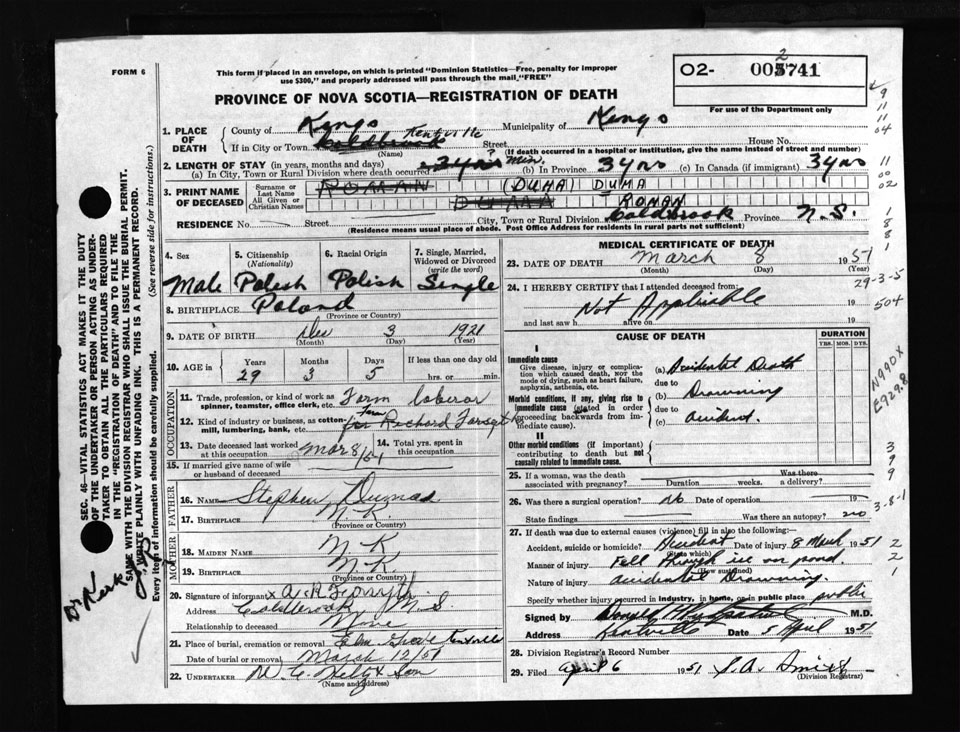 FORM 6
This form if placed in an envelope, on which is printed "Dominion Statistics—Free, penalty for improper
use $300," and properly addressed will pass through the mail "FREE"
O2- 005741
2
For use of the Department only
PROVINCE OF NOVA SCOTIA—REGISTRATION OF DEATH
1. PLACE OF DEATH
County of Kings Municipality of Kings
Kentville
If in City or Town Coldbrook Street House No.
(Name) (If death occurred in a hospital or institution, give the name instead of street and number)
2. LENGTH OF STAY (in years, months and days)
(a) In City, Town or Rural Division where death occurred 3 yrs ? Min. (b) In Province 3 yrs (c) In Canada (if immigrant) 3 yrs
3. PRINT NAME OF DECEASED
Surname or Last Name ROMAN (DUHA) DUMA
All Given or Christian Names DUMA ROMAN
RESIDENCE No. Street City, Town or Rural Division Coldbrook Province N.S.
(Residence means usual place of abode. Post Office Address for residents in rural parts not sufficient)
4. Sex
5. Citizenship (Nationality)
6. Racial Origin
7. Single, Married, Widowed or Divorced (write the word)
Male Polish Polish Single
8. BIRTHPLACE Poland
(Province or Country)
9. DATE OF BIRTH Dec 3 1921
(Month) (Day) (Year)
10. AGE in Years Months Days If less than one day old
29 3 5 hrs. or min.
OCCUPATION
11. Trade, profession, or kind of work as spinner, teamster, office clerk, etc. Farm laborer
12. Kind of industry or business, as cotton mill, lumbering, bank, etc. for Richard Forsyth
13. Date deceased last worked at this occupation Mar 8/51
14. Total yrs. spent in this occupation
15. If married give name of wife or husband of deceased
FATHER
16. NAME Stephen Dumas
17. BIRTHPLACE N.K
(Province or Country)
MOTHER
18. MAIDEN NAME N.K
19. BIRTHPLACE N.K
(Province or Country)
20. Signature of informant x A R Forsyth
Address Coldbrook N.S.
Relationship to deceased None
21. Place of burial, cremation or removal Elm Grove Kentville
Date of burial or removal March 12/51
22. UNDERTAKER & Son
(Name and address)
MEDICAL CERTIFICATE OF DEATH
23. DATE OF DEATH March 8 1951
(Month) (Day) (Year)
24. I HEREBY CERTIFY that I attended deceased from:
Not Applicable 19
and last saw h alive on 19
CAUSE OF DEATH
DURATION
YRS. MOS. DYS.
I
Immediate cause
Give disease, injury or complication which caused death, NOT the mode of dying, such as heart failure, asphyxia, asthenia, etc.
(a) Accidental Death
due to
Morbid conditions, if any, giving rise to immediate cause (stated in order proceeding backwards from immediate cause).
(b) Drowning
due to
(c) accident.
II
Other morbid conditions (if important) contributing to death but not causally related to immediate cause.
25. If a woman, was the death associated with pregnancy? Duration weeks. Was there a delivery?
26. Was there a surgical operation? No Date of operation 19
State findings Was there an autopsy? no
27. If death was due to external causes (violence) fill in also the following:—
Accident, suicide or homicide? Accident Date of injury 8 March 1951
(State which)
Manner of injury Fell through ice on pond.
(How sustained)
Nature of injury accidental Drowning.
Specify whether injury occurred in industry, in home, or in public place public
Signed by M.D.
Address Kentville Date 5 April 1951
28. Division Registrar's Record Number
29. Filed April 6 1951
(Division Registrar)
SEC. 46—VITAL STATISTICS ACT MAKES IT THE DUTY
OF THE UNDERTAKER OR PERSON ACTING AS UNDER-
TAKER TO OBTAIN ALL THE PARTICULARS REQUIRED
IN THE "REGISTRATION OF DEATH" AND TO FILE THE
SAME WITH THE DIVISION REGISTRAR WHO SHALL ISSUE THE BURIAL PERMIT.
WRITE PLAINLY WITH UNFADING INK. THIS IS A PERMANENT RECORD.
Every item of information should be carefully supplied.
(See reverse side for instructions.)
9
11
11
04
11
00
02
1
8
8
1
29-3-5
504
N990X
E929.8
3
9
9
3-8-1
2
2
1